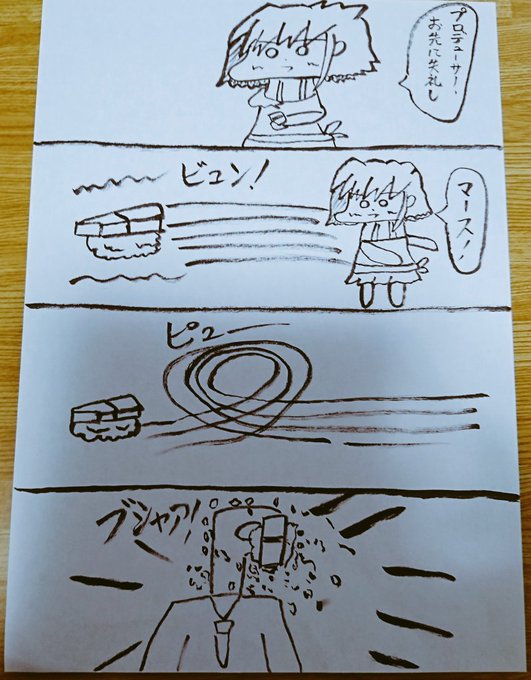 プロデューサー・
お先に失礼し
ビュン!
マース!
ピュー
ブシャア!